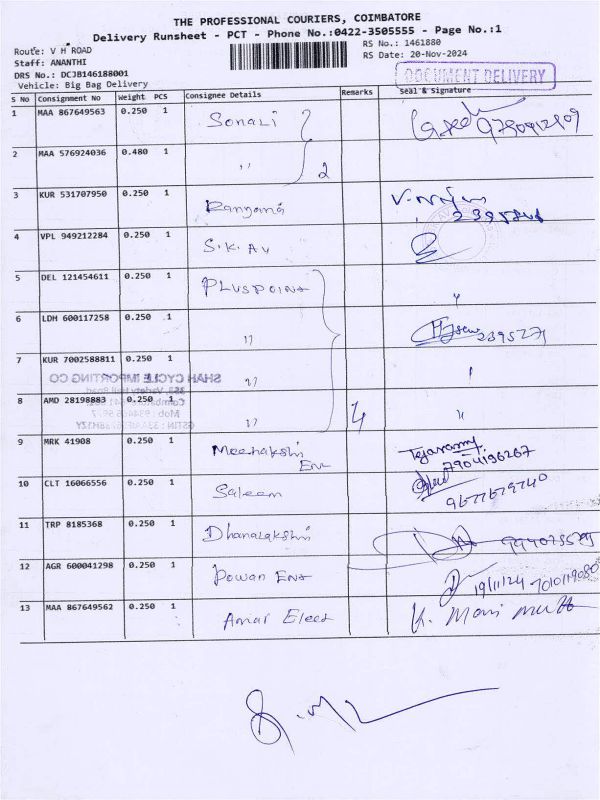 THE PROFESSIONAL COURIERS, COIMBATORE
Delivery Runsheet - PCT - Phone No.:0422-3505555 - Page No.:1
Route: V H ROAD RS No.: 1461880
Staff: ANANTHI RS Date: 20-Nov-2024
DRS No.: DCJB146188001
Vehicle: Big Bag Delivery DOCUMENT DELIVERY
S No Consignment No Weight PCS Consignee Details Remarks Seal & Signature
1 MAA 867649563 0.250 1 Sonali
2 MAA 576924036 0.480 1 ,, 2
3 KUR 531707950 0.250 1 Ranjana
4 VPL 949212284 0.250 1 S.K. Av
5 DEL 121454611 0.250 1 PLUSPOINT ,,
6 LDH 600117258 0.250 1 ,, 2395271
7 KUR 7002588811 0.250 1 ,,
SHAH CYCLE IMPORTING CO
8 AMD 28198883 0.250 1 ,, 4 ,,
9 MRK 41908 0.250 1 Meenakshi
Ent 7904196267
10 CLT 16066556 0.250 1 Saleem
11 TRP 8185368 0.250 1 Dhanalakshmi
12 AGR 600041298 0.250 1 Powan Ent 19/11/24 7010119080
13 MAA 867649562 0.250 1 Amar Elect K. Mani